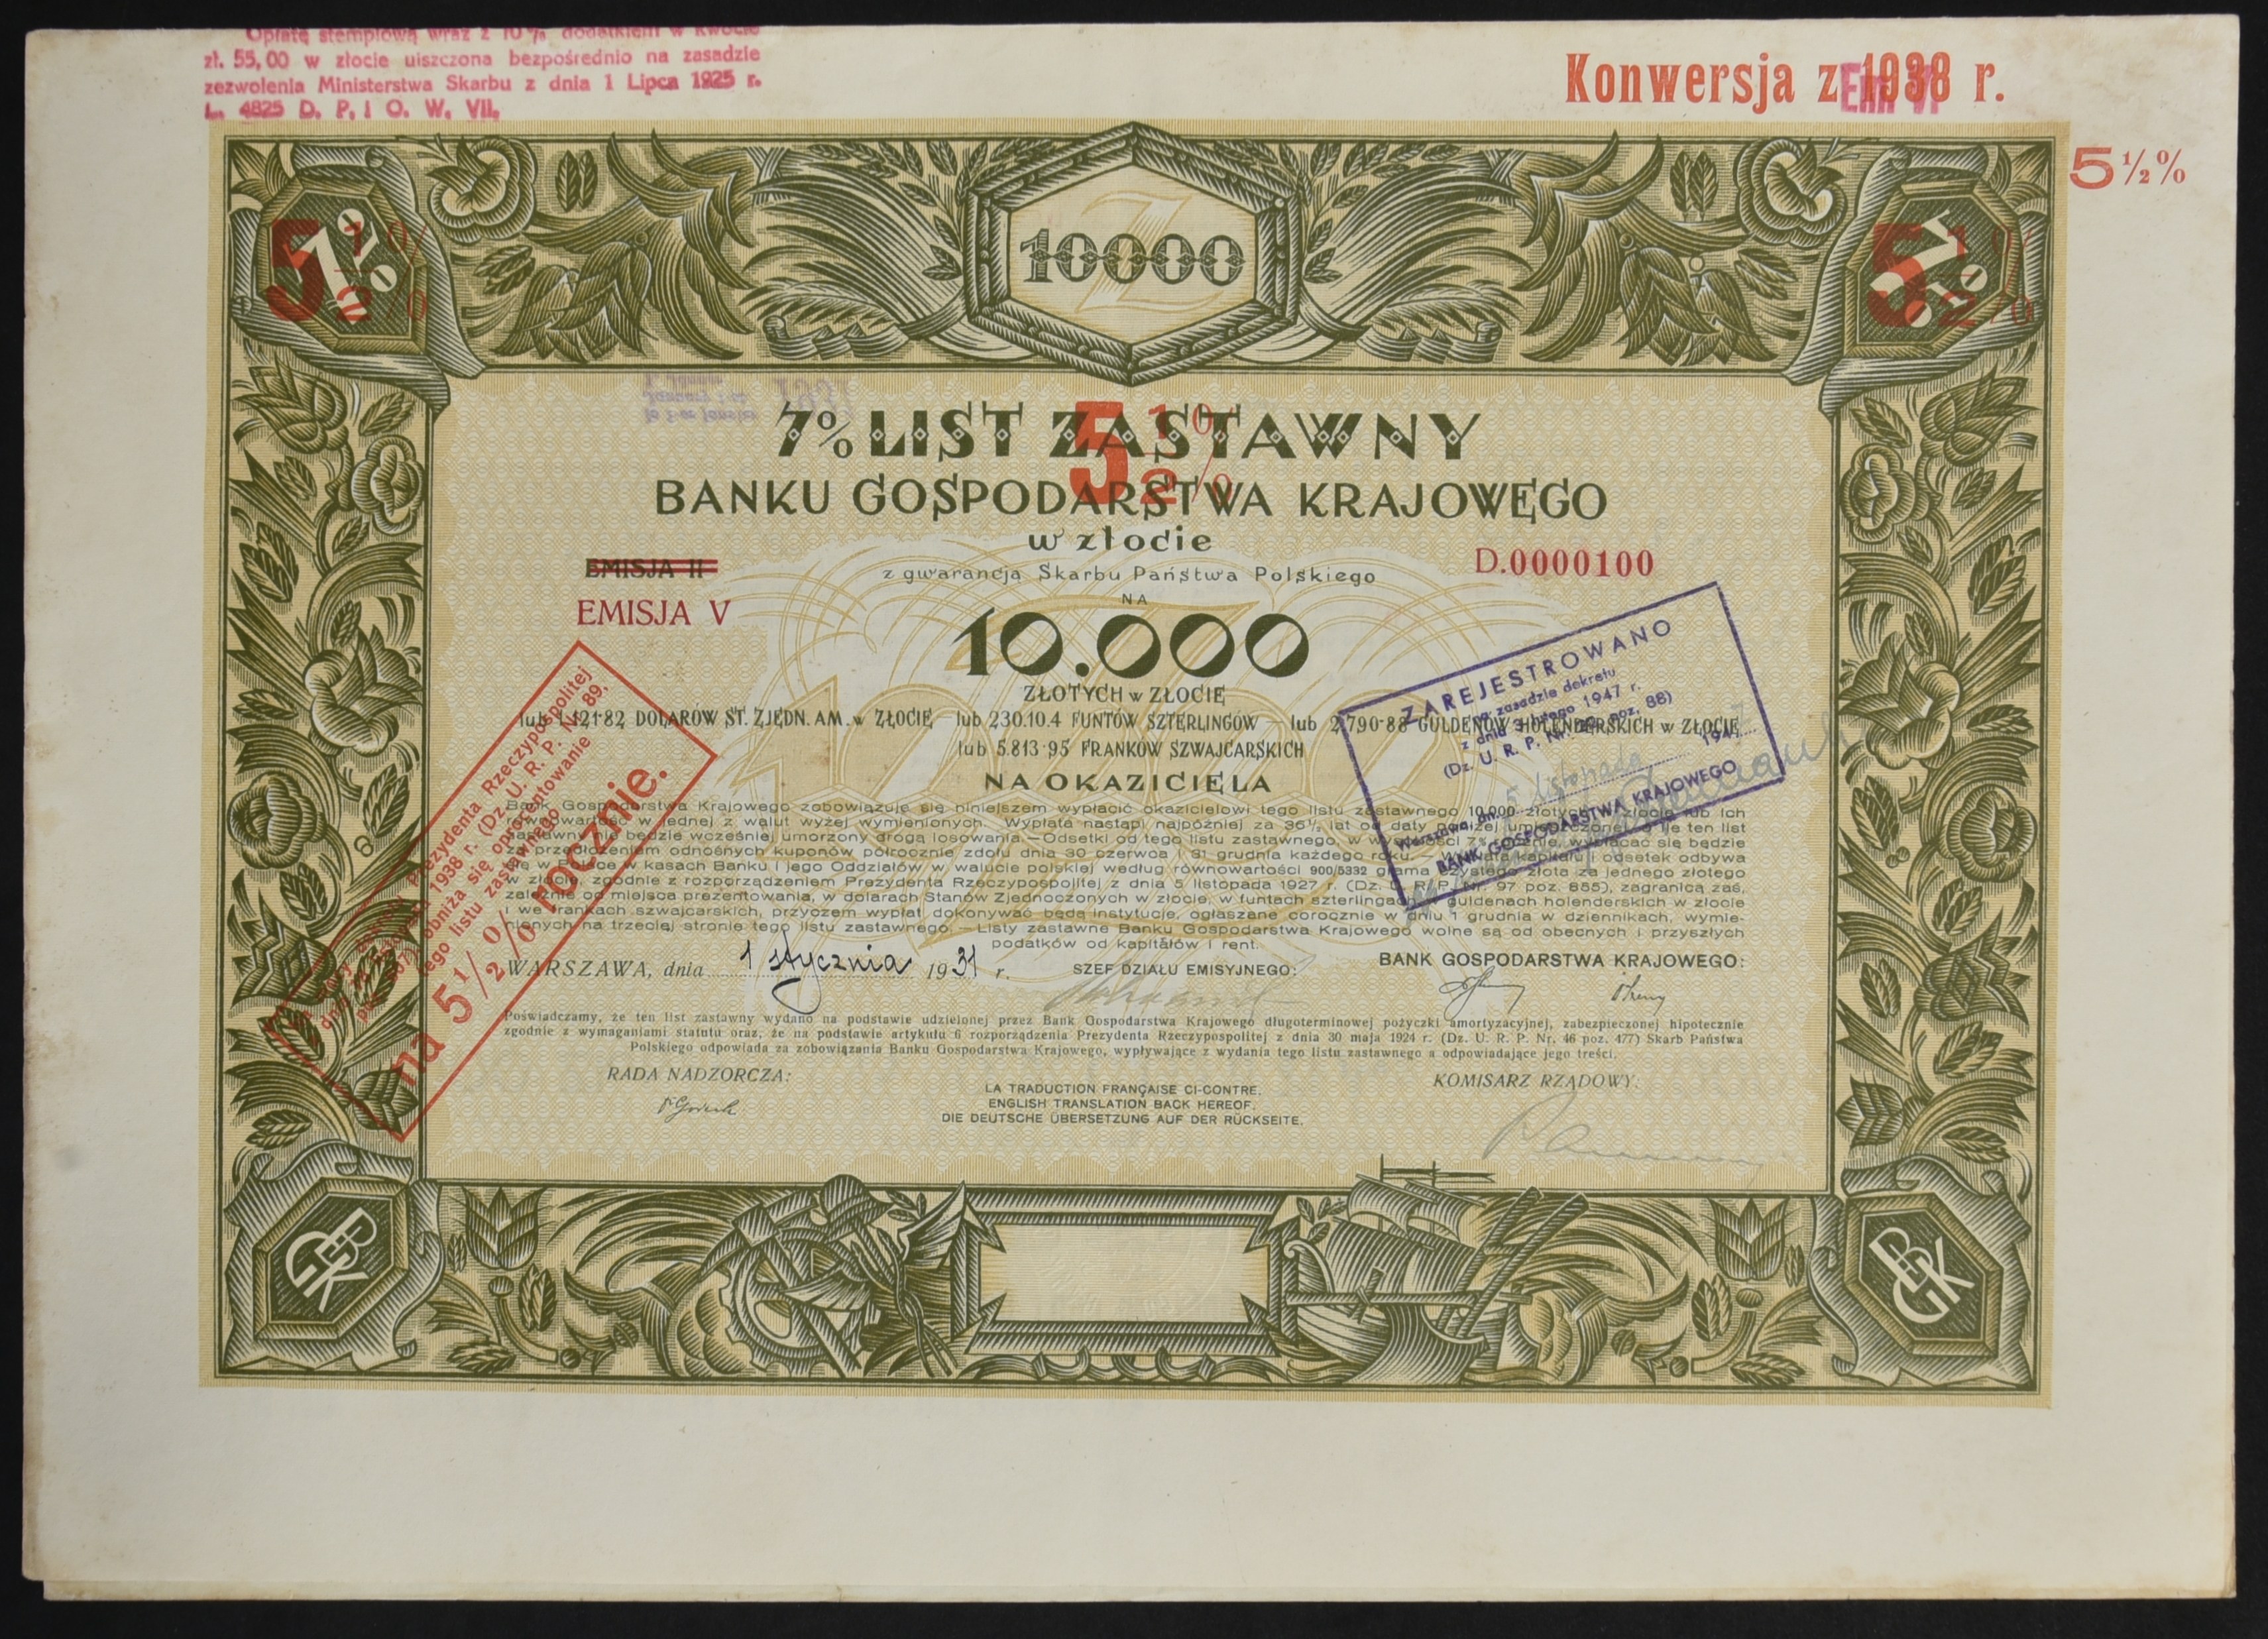 Opłatę stemplową wraz z 10% dodatkiem w kwocie
zł. 55,00 w złocie uiszczona bezpośrednio na zasadzie
zezwolenia Ministerstwa Skarbu z dnia 1 Lipca 1925 r.
L. 4825 D. P. i O. W. VII.
Konwersja z 1938 r.
Em VI
5 ½%
7%
5 ½%
10000
7%
5 ½%
7% LIST ZASTAWNY
5 ½%
BANKU GOSPODARSTWA KRAJOWEGO
w złocie
EMISJA II
z gwarancją Skarbu Państwa Polskiego
D.0000100
EMISJA V
NA
10.000
ZŁOTYCH w ZŁOCIE
lub 1.121·82 DOLARÓW ST. ZJEDN. AM. w ZŁOCIE — lub 230.10.4 FUNTÓW SZTERLINGÓW — lub 2.790·88 GULDENÓW HOLENDERSKICH w ZŁOCIE
lub 5.813·95 FRANKÓW SZWAJCARSKICH
NA OKAZICIELA
Bank Gospodarstwa Krajowego zobowiązuje się niniejszem wypłacić okazicielowi tego listu zastawnego 10.000 złotych w złocie lub ich
równowartość w jednej z walut wyżej wymienionych. Wypłata nastąpi najpóźniej za 36½ lat od daty poniżej umieszczonej, o ile ten list
zastawny nie będzie wcześniej umorzony drogą losowania. — Odsetki od tego listu zastawnego, w wysokości 7% rocznie, wypłacać się będzie
za przedłożeniem odnośnych kuponów półrocznie zdołu dnia 30 czerwca i 31 grudnia każdego roku. — Wypłata kapitału i odsetek odbywa
się w Polsce w kasach Banku i jego Oddziałów w walucie polskiej według równowartości 900/5332 grama czystego złota za jednego złotego
w złocie, zgodnie z rozporządzeniem Prezydenta Rzeczypospolitej z dnia 5 listopada 1927 r. (Dz. U. R. P. Nr. 97 poz. 855), zagranicą zaś,
zależnie od miejsca prezentowania, w dolarach Stanów Zjednoczonych w złocie, w funtach szterlingach, guldenach holenderskich w złocie
i we frankach szwajcarskich, przyczem wypłat dokonywać będą instytucje, ogłaszane corocznie w dniu 1 grudnia w dziennikach, wymie-
nionych na trzeciej stronie tego listu zastawnego. — Listy zastawne Banku Gospodarstwa Krajowego wolne są od obecnych i przyszłych
podatków od kapitałów i rent.
WARSZAWA, dnia 1 stycznia 1931 r.
SZEF DZIAŁU EMISYJNEGO:
BANK GOSPODARSTWA KRAJOWEGO:
Poświadczamy, że ten list zastawny wydano na podstawie udzielonej przez Bank Gospodarstwa Krajowego długoterminowej pożyczki amortyzacyjnej, zabezpieczonej hipotecznie
zgodnie z wymaganiami statutu oraz, że na podstawie artykułu 6 rozporządzenia Prezydenta Rzeczypospolitej z dnia 30 maja 1924 r. (Dz. U. R. P. Nr. 46 poz. 477) Skarb Państwa
Polskiego odpowiada za zobowiązania Banku Gospodarstwa Krajowego, wypływające z wydania tego listu zastawnego a odpowiadające jego treści.
RADA NADZORCZA:
KOMISARZ RZĄDOWY:
LA TRADUCTION FRANÇAISE CI-CONTRE.
ENGLISH TRANSLATION BACK HEREOF.
DIE DEUTSCHE ÜBERSETZUNG AUF DER RÜCKSEITE.
Prezydenta Rzeczypospolitej
1938 r. (Dz. U. R. P. Nr. 89,
obniża się oprocentowanie
tego listu zastawnego
na 5 ½% rocznie.
ZAREJESTROWANO
na zasadzie dekretu
z dnia 3 lutego 1947 r.
(Dz. U. R. P. Nr. poz. 88)
Warszawa, dn. 5 listopada 1947
BANK GOSPODARSTWA KRAJOWEGO
BGK
BGK